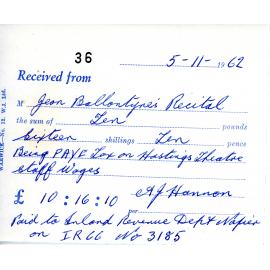 36
5-11-1962
Received from
M Jean Ballantyne's Recital
the sum of Ten pounds
Sixteen shillings Ten pence
Being PAYE Tax on Hastings Theatre
staff Wages
£ 10:16:10 AJ Hannon
Paid to Inland Revenue Dept Napier
on IR66 No 3185
WARWICK—No. 12. W.J. Ltd.